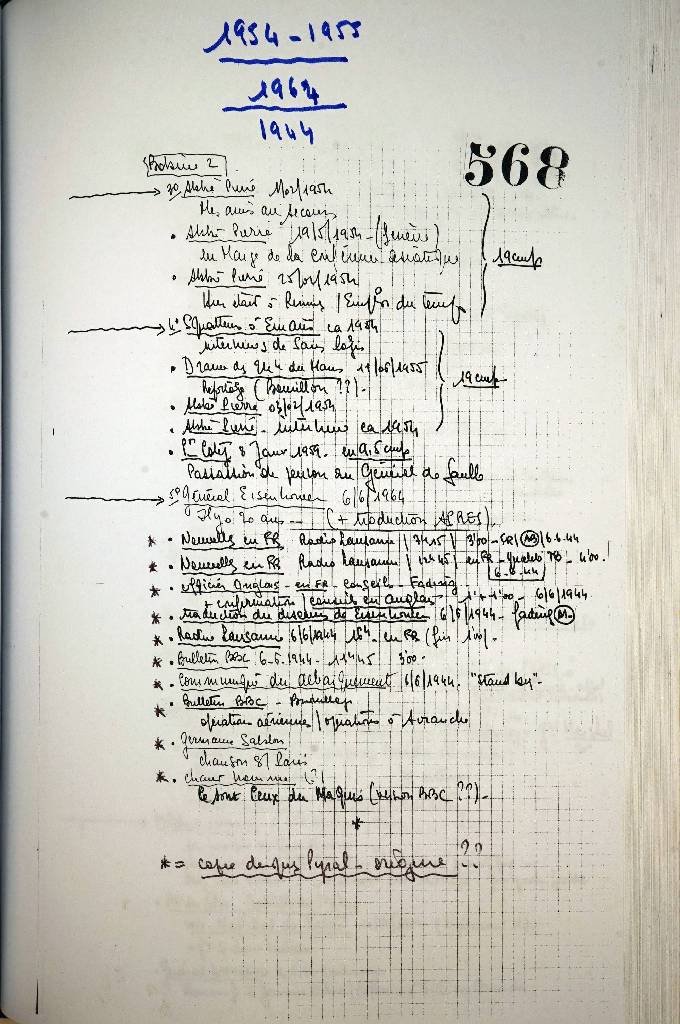 1954-1955
1964
1944
568
Bobine 2
3° Abbé Pierre 1/02/1954
Mes amis au secours
• Abbé Pierre 19/5/1954 - (Genève)
en Marge de la Conférence asiatique
• Abbé Pierre 25/02/1954
Hier était à Rennes / Emploi du temps
19 cm/s
4° Squatters à Emaüs ca 1954
interviews de Sans logis
• Drame des 24h du Mans 11/06/1955
Reportage (Bouillon ??).
• Abbé Pierre 03/02/1954
• Abbé Pierre - interview ca 1954
19 cm/s
• Pdt Coty 8 Janv 1959. en 9,5 cm/s
Passation de pouvoir au Général de Gaulle
5° Général Eisenhower 6/6/1964
Il y a 20 ans --- (+ traduction APRES).
* • Nouvelles en FR Radio Lausanne / 3'00 - FR / 6.6.44
* • Nouvelles en FR Radio Lausanne / 12h45 / en FR - Qualité TB - 4'00.
6-6-44
* • Officier Anglais - en FR - Conseils - Fading
+ confirmation / conseils en anglais 1'+1'00 - 6/6/1944
* • traduction du discours de Eisenhower 6/6/1944 - fading (M-)
* • Radio Lausanne 6/6/1944 en FR (fin 1'00).
* • Bulletin BBC 6-6-1944 - 11h45 3'00 -
* • Communiqué du débarquement 6/6/1944. "Stand by".
* • Bulletin BBC -
opération aérienne / opérations à Avranche
* • Germaine Sablon
chanson s/ Paris
* • chœur homme (?)
Ce sont Ceux du Maquis (version BBC ??).
*
* = copie disques Pyral - origine ??